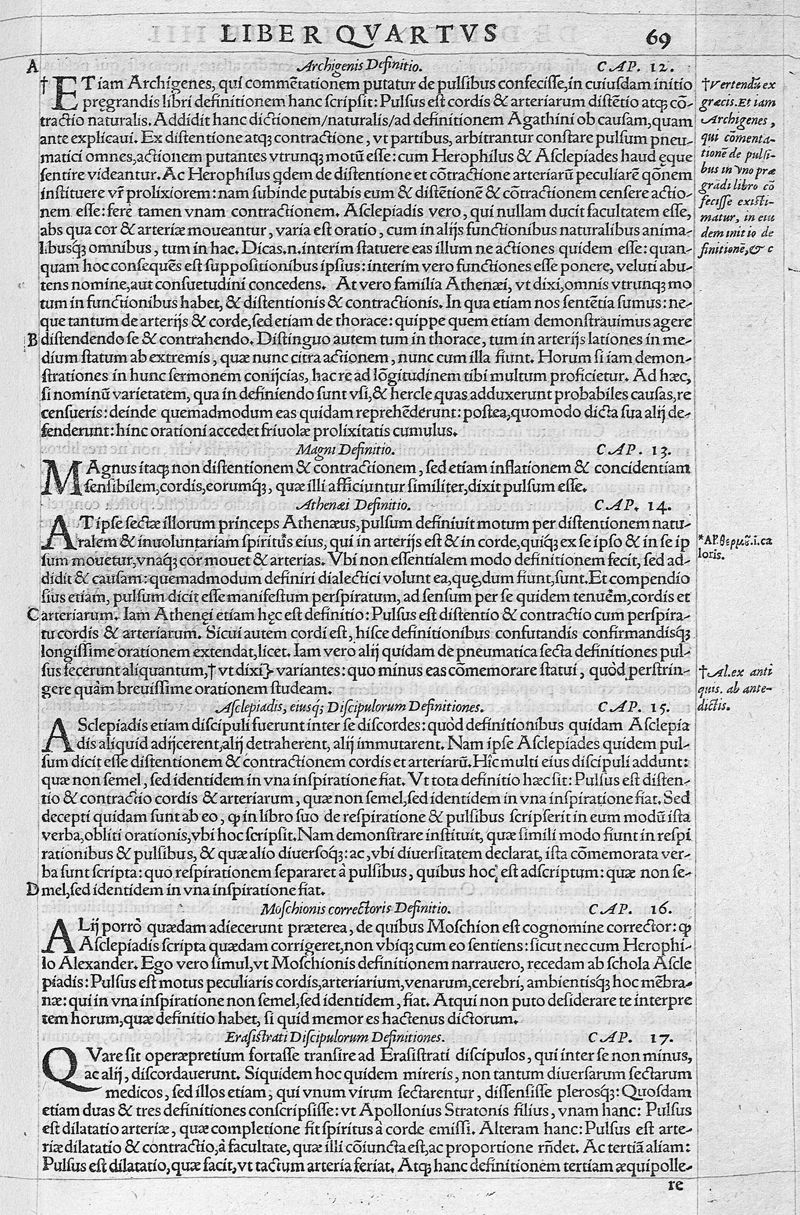 LIBER QVARTVS 69
A Archigenis Definitio. CAP. 12.
†ETiam Archigenes, qui commētationem putatur de pulsibus confecisse, in cuiusdam initio
pręgrandis libri definitionem hanc scripsit: Pulsus est cordis & arteriarum distētio atqꝫ cō-
tractio naturalis. Addidit hanc dictionem/naturalis/ad definitionem Agathini ob causam, quam
ante explicaui. Ex distentione atqꝫ contractione, vt partibus, arbitrantur constare pulsum pneu-
matici omnes, actionem putantes vtrunqꝫ motū esse: cum Herophilus & Asclepiades haud ęque
sentire videantur. Ac Herophilus qdem de distentione et cōtractione arteriarū peculiarē qōnem
instituere vr̄ prolixiorem: nam subinde putabis eum & distētionē & cōtractionem censere actio-
nem esse: ferè tamen vnam contractionem. Asclepiadis vero, qui nullam ducit facultatem esse,
abs qua cor & arteriæ moueantur, varia est oratio, cum in alijs functionibus naturalibus anima-
libusqꝫ omnibus, tum in hac. Dicas.n.interim statuere eas illum ne actiones quidem esse: quan-
quam hoc consequēs est suppositionibus ipsius: interim vero functiones esse ponere, veluti abu-
tens nomine, aut consuetudini concedens. At vero familia Athenæi, vt dixi, omnis vtrunqꝫ mo
tum in functionibus habet, & distentionis & contractionis. In qua etiam nos sentētia sumus: ne-
que tantum de arterijs & corde, sed etiam de thorace: quippe quem etiam demonstrauimus agere
B distendendo se & contrahendo. Distinguo autem tum in thorace, tum in arterijs lationes in me-
dium statum ab extremis, quæ nunc citra actionem, nunc cum illa fiunt. Horum si iam demon-
strationes in hunc sermonem conijcias, hac re ad lōgitudinem tibi multum proficietur. Ad hæc,
si nominū varietatem, qua in definiendo sunt vsi, & hercle quas adduxerunt probabiles causas, re
censueris: deinde quemadmodum eas quidam reprehēderunt: postea, quomodo dicta sua alij de-
fenderunt: hinc orationi accedet friuolæ prolixitatis cumulus.
Magni Definitio. CAP. 13.
MAgnus itaqꝫ non distentionem & contractionem, sed etiam inflationem & concidentiam
sensibilem, cordis, eorumqꝫ, quæ illi afficiuntur similiter, dixit pulsum esse.
Athenæi Definitio. CAP. 14.
AT ipse sectæ illorum princeps Athenæus, pulsum definiuit motum per distentionem natu-
ralem & inuoluntariam spiritus eius, qui in arterijs est & in corde, quiqꝫ ex se ipso & in se ip
sum mouetur, vnaqꝫ cor mouet & arterias. Vbi non essentialem modo definitionem fecit, sed ad-
didit & causam: quemadmodum definiri dialectici volunt ea, quę dum fiunt, sunt. Et compendio
sius etiam, pulsum dicit esse manifestum perspiratum, ad sensum per se quidem tenuem, cordis et
C arteriarum. Iam Athenęi etiam hęc est definitio: Pulsus est distentio & contractio cum perspira-
tu cordis & arteriarum. Sicui autem cordi est, hisce definitionibus confutandis confirmandisqꝫ
longissime orationem extendat, licet. Iam vero alij quidam de pneumatica secta definitiones pul-
sus fecerunt aliquantum,† vt dixi} variantes: quo minus eas cōmemorare statui, quòd perstrin-
gere quàm breuissime orationem studeam.
Asclepiadis, eiusqꝫ Discipulorum Definitiones. CAP. 15.
ASclepiadis etiam discipuli fuerunt inter se discordes: quòd definitionibus quidam Asclepia
dis aliquid adijcerent, alij detraherent, alij immutarent. Nam ipse Asclepiades quidem pul-
sum dicit esse distentionem & contractionem cordis et arteriarū. Hic multi eius discipuli addunt:
quæ non semel, sed identidem in vna inspiratione fiat. Vt tota definitio hæc sit: Pulsus est disten-
tio & contractio cordis & arteriarum, quæ non semel, sed identidem in vna inspiratione fiat. Sed
decepti quidam sunt ab eo, ꝙ in libro suo de respiratione & pulsibus scripserit in eum modū ista
verba, obliti orationis, vbi hoc scripsit. Nam demonstrare instituit, quæ simili modo fiunt in respi
rationibus & pulsibus, & quæ alio diuersoqꝫ: ac, vbi diuersitatem declarat, ista cōmemorata ver-
ba sunt scripta: quo respirationem separaret à pulsibus, quibus hoc est adscriptum: quæ non se-
D mel, sed identidem in vna inspiratione fiat.
Moschionis correctoris Definitio. CAP. 16.
ALij porrò quædam adiecerunt præterea, de quibus Moschion est cognomine corrector: ꝙ
Asclepiadis scripta quædam corrigeret, non vbiqꝫ cum eo sentiens: sicut nec cum Herophi-
lo Alexander. Ego vero simul, vt Moschionis definitionem narrauero, recedam ab schola Ascle
piadis: Pulsus est motus peculiaris cordis, arteriarium, venarum, cerebri, ambientisqꝫ hoc mēbra-
næ: qui in vna inspiratione non semel, sed identidem, fiat. Atqui non puto desiderare te interpre
tem horum, quæ definitio habet, si quid memor es hactenus dictorum.
Erasistrati Discipulorum Definitiones. CAP. 17.
QVare sit operæpretium fortasse transire ad Erasistrati discipulos, qui inter se non minus,
ac alij, discordauerunt. Siquidem hoc quidem mireris, non tantum diuersarum sectarum
medicos, sed illos etiam, qui vnum virum sectarentur, dissensisse plerosqꝫ: Quosdam
etiam duas & tres definitiones conscripsisse: vt Apollonius Stratonis filius, vnam hanc: Pulsus
est dilatatio arteriæ, quæ completione fit spiritus à corde emissi. Alteram hanc: Pulsus est arte-
riæ dilatatio & contractio, à facultate, quæ illi cōiuncta est, ac proportione rn̄det. Ac tertiā aliam:
Pulsus est dilatatio, quæ facit, vt tactum arteria feriat. Atqꝫ hanc definitionem tertiam æquipolle-
re
†Vertendū ex
græcis. Et iam
Archigenes,
qui comenta-
tionē de pulsi-
bus in vno præ
grādi libro cō
fecisse existi-
matur, in eiu
dem initio de
finitionē, & c
*AP. θερμοῦ. i. ca
loris.
†Al. ex anti
quis. ab ante-
dictis.